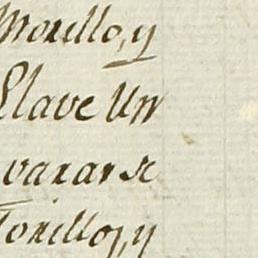 Morillo, y
Clave Un
vanarse
Tonillos, y